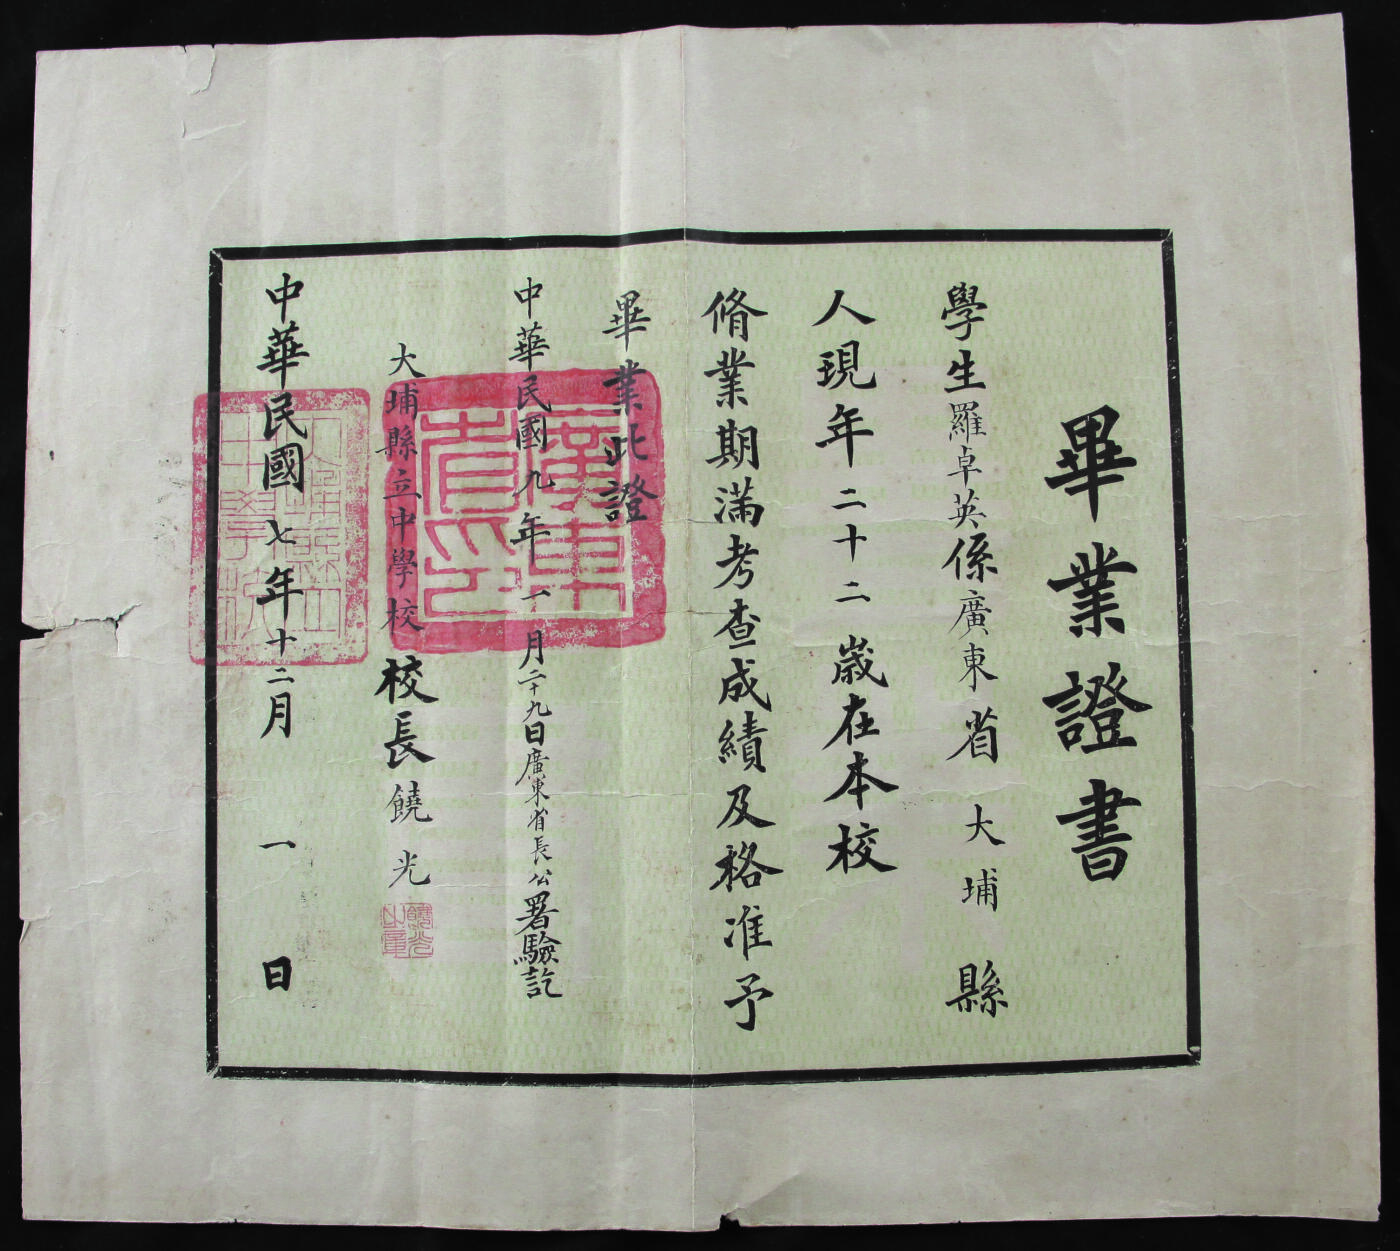 畢業證書
學生羅卓英係廣東省大埔縣
人現年二十二歲在本校
脩業期滿考查成績及格准予
畢業此證
中華民國九年一月二十九日廣東省長公署驗訖
大埔縣立中學校校長饒光
中華民國七年十二月一日
廣東省長之印